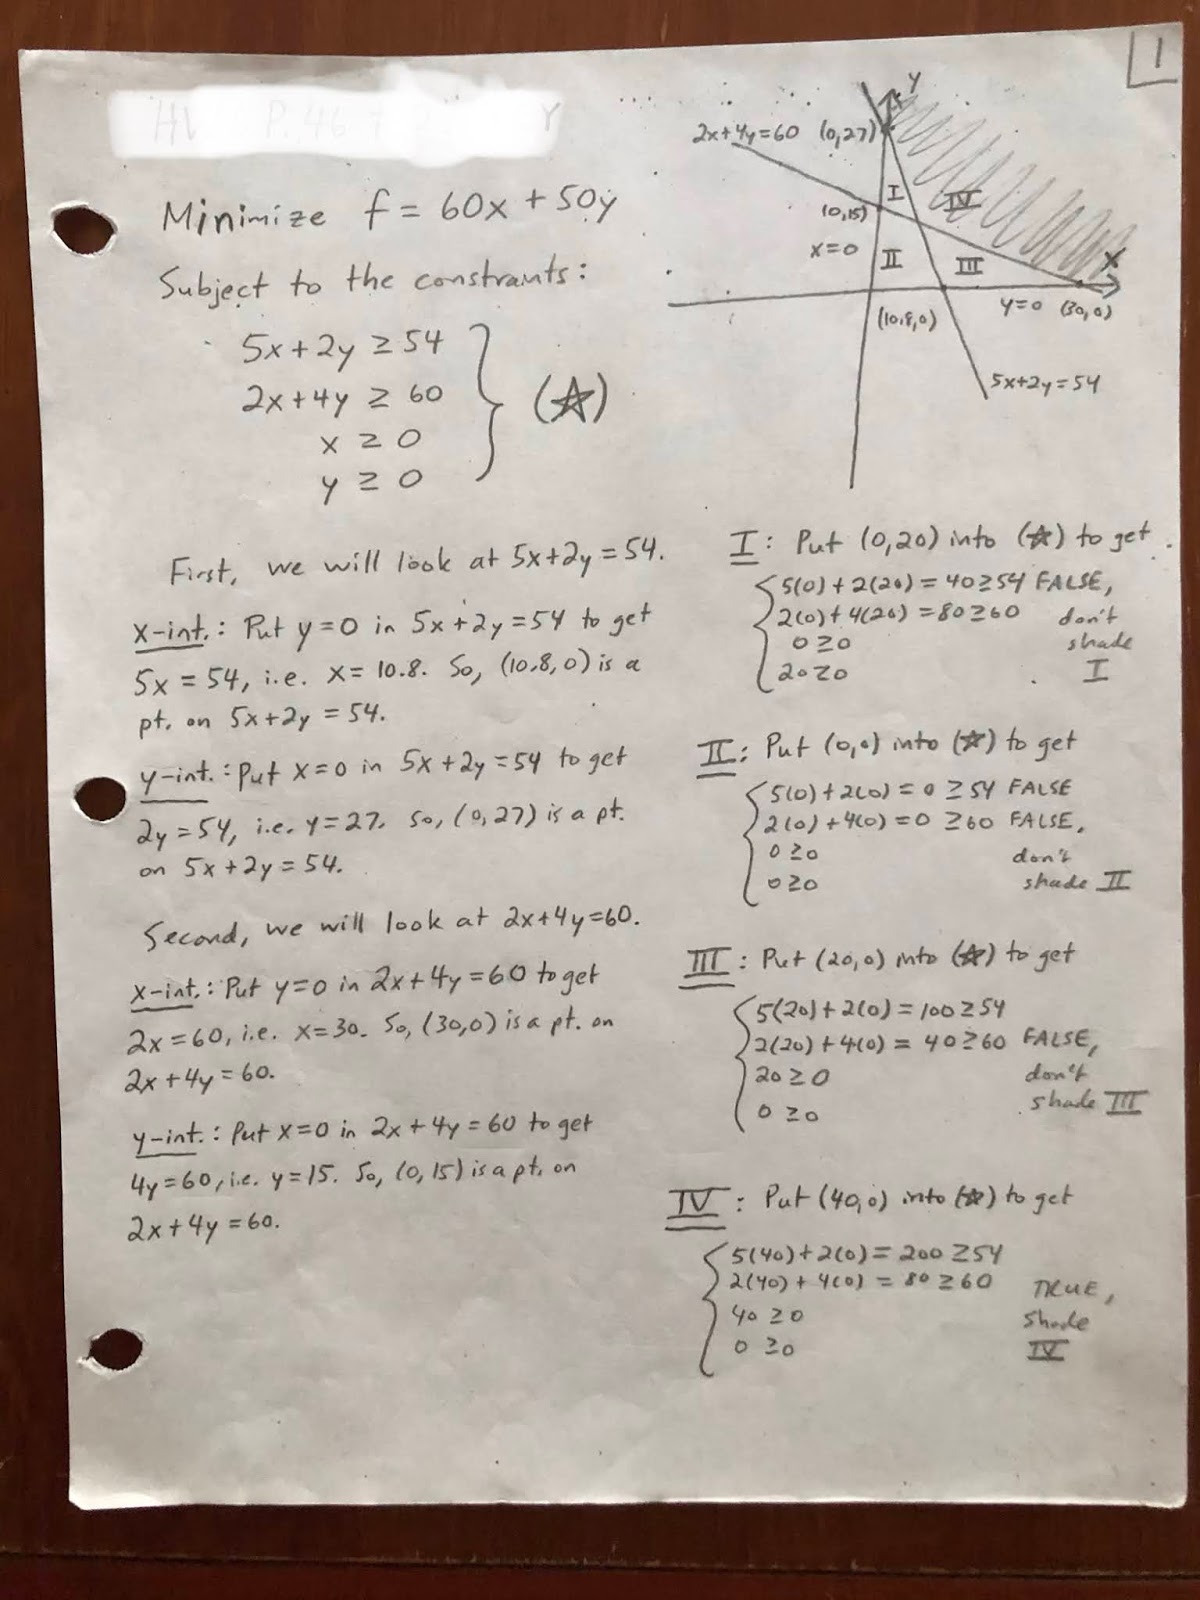 1
Minimize f = 60x + 50y
Subject to the constraints:
5x + 2y ≥ 54
2x + 4y ≥ 60
x ≥ 0
y ≥ 0
(☆)
First, we will look at 5x+2y = 54.
x-int.: Put y=0 in 5x+2y=54 to get
5x = 54, i.e. x = 10.8. So, (10.8, 0) is a
pt. on 5x+2y = 54.
y-int.: Put x=0 in 5x+2y=54 to get
2y=54, i.e. y=27. So, (0, 27) is a pt.
on 5x+2y=54.
Second, we will look at 2x+4y=60.
x-int.: Put y=0 in 2x+4y=60 to get
2x=60, i.e. x=30. So, (30,0) is a pt. on
2x+4y=60.
y-int.: Put x=0 in 2x+4y=60 to get
4y=60, i.e. y=15. So, (0, 15) is a pt. on
2x+4y=60.
y
2x+4y=60 (0,27)
I
IV
(0,15)
x=0
II
III
x
(10.8,0)
y=0 (30,0)
5x+2y=54
I: Put (0,20) into (☆) to get
5(0)+2(20) = 40≥54 FALSE,
2(0)+4(20) = 80≥60 don't
0≥0 shade
20≥0 I
II: Put (0,0) into (☆) to get
5(0)+2(0) = 0 ≥54 FALSE
2(0)+4(0) = 0 ≥60 FALSE,
0≥0 don't
0≥0 shade II
III: Put (20,0) into (☆) to get
5(20)+2(0) = 100≥54
2(20)+4(0) = 40≥60 FALSE,
20≥0 don't
0≥0 shade III
IV: Put (40,0) into (☆) to get
5(40)+2(0) = 200≥54
2(40)+4(0) = 80≥60 TRUE,
40≥0 shade
0≥0 IV